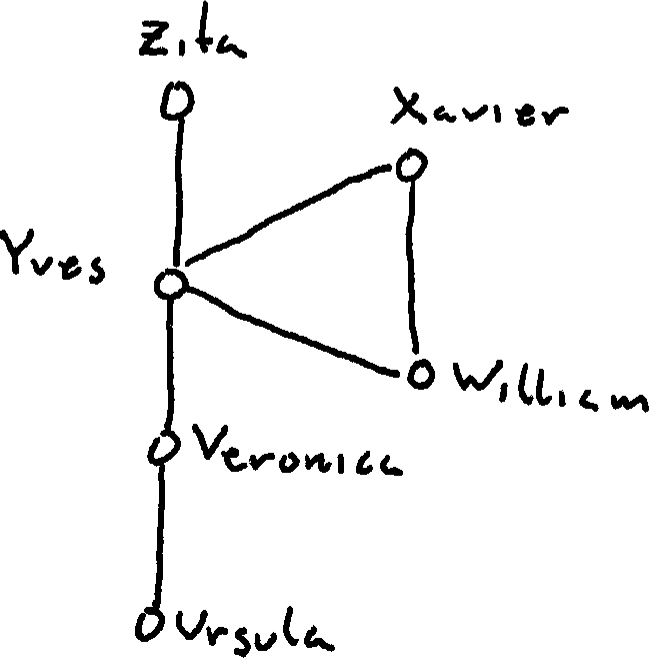 Zita
Xavier
Yves
William
Veronica
Ursula